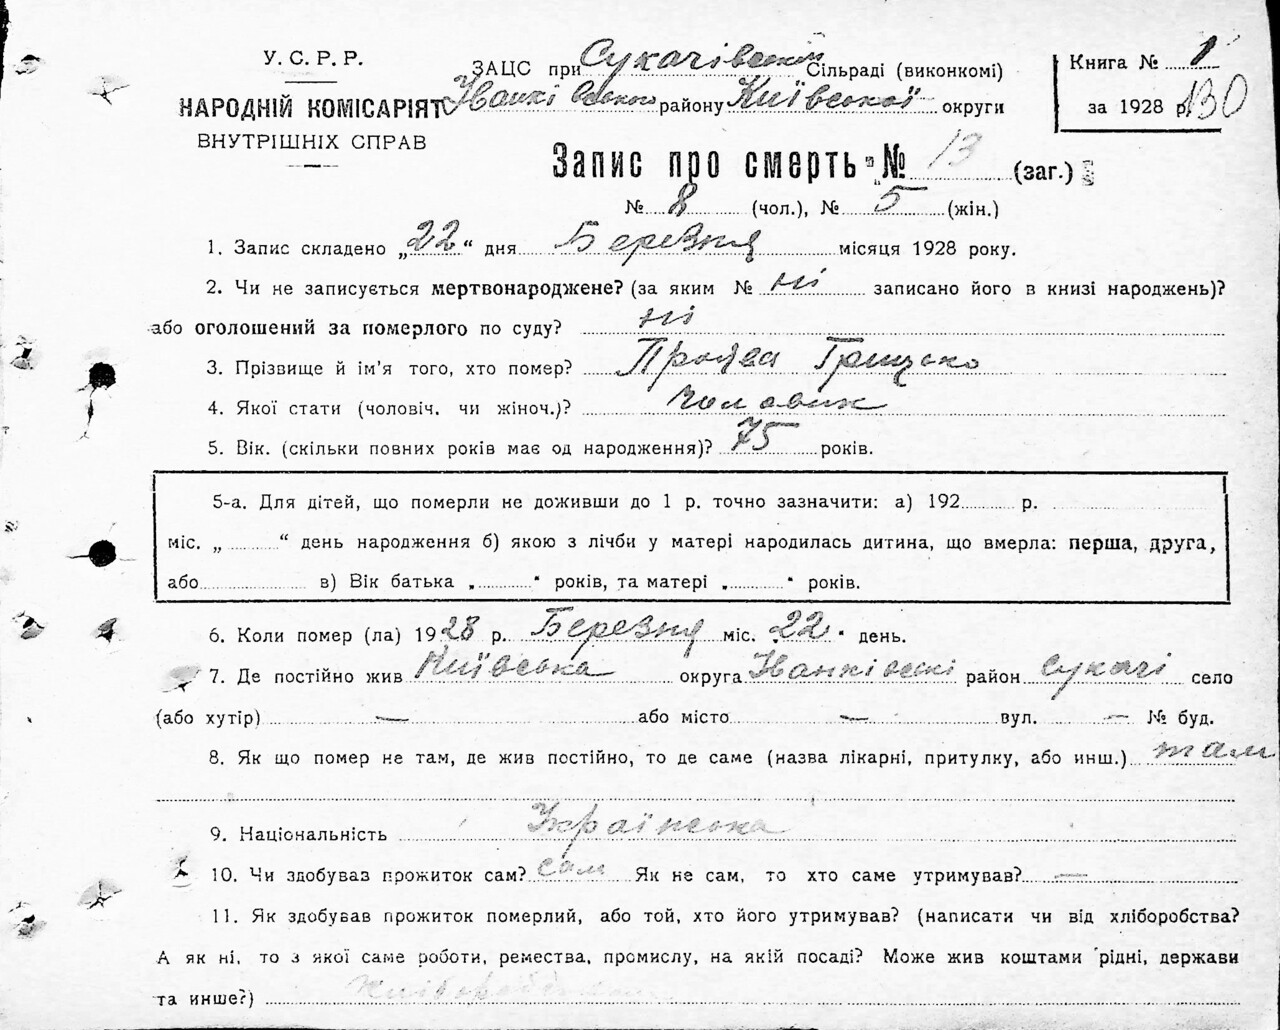 У. С. Р. Р.
НАРОДНІЙ КОМІСАРІЯТ
ВНУТРІШНІХ СПРАВ
ЗАЦС при Сукачівській Сільраді (виконкомі)
Іванківського району Київської округи
Книга № 1
за 1928 р. 130
Запис про смерть № 13 (заг.)
№ 8 (чол.), № 5 (жін.)
1. Запис складено „22“ дня Березня місяця 1928 року.
2. Чи не записується мертвонароджене? (за яким № ні записано його в книзі народжень)?
або оголошений за померлого по суду? ні
3. Прізвище й ім'я того, хто помер? Грицько
4. Якої стати (чоловіч. чи жіноч.)? Чоловик
5. Вік. (скільки повних років має од народження)? 75 років.
5-а. Для дітей, що померли не доживши до 1 р. точно зазначити: а) 192 р.
міс. „ “ день народження б) якою з лічби у матері народилась дитина, що вмерла: перша, друга,
або в) Вік батька „ “ років, та матері „ “ років.
6. Коли помер (ла) 1928 р. Березня міс. 22 день.
7. Де постійно жив Київська округа Іванківські район Сукачі село
(або хутір) — або місто — вул. — № буд.
8. Як що помер не там, де жив постійно, то де саме (назва лікарні, притулку, або инш.) там
9. Національність Українська
10. Чи здобував прожиток сам? сам Як не сам, то хто саме утримував? —
11. Як здобував прожиток померлий, або той, хто його утримував? (написати чи від хліборобства?
А як ні, то з якої саме роботи, ремества, промислу, на якій посаді? Може жив коштами рідні, держави
та инше?)